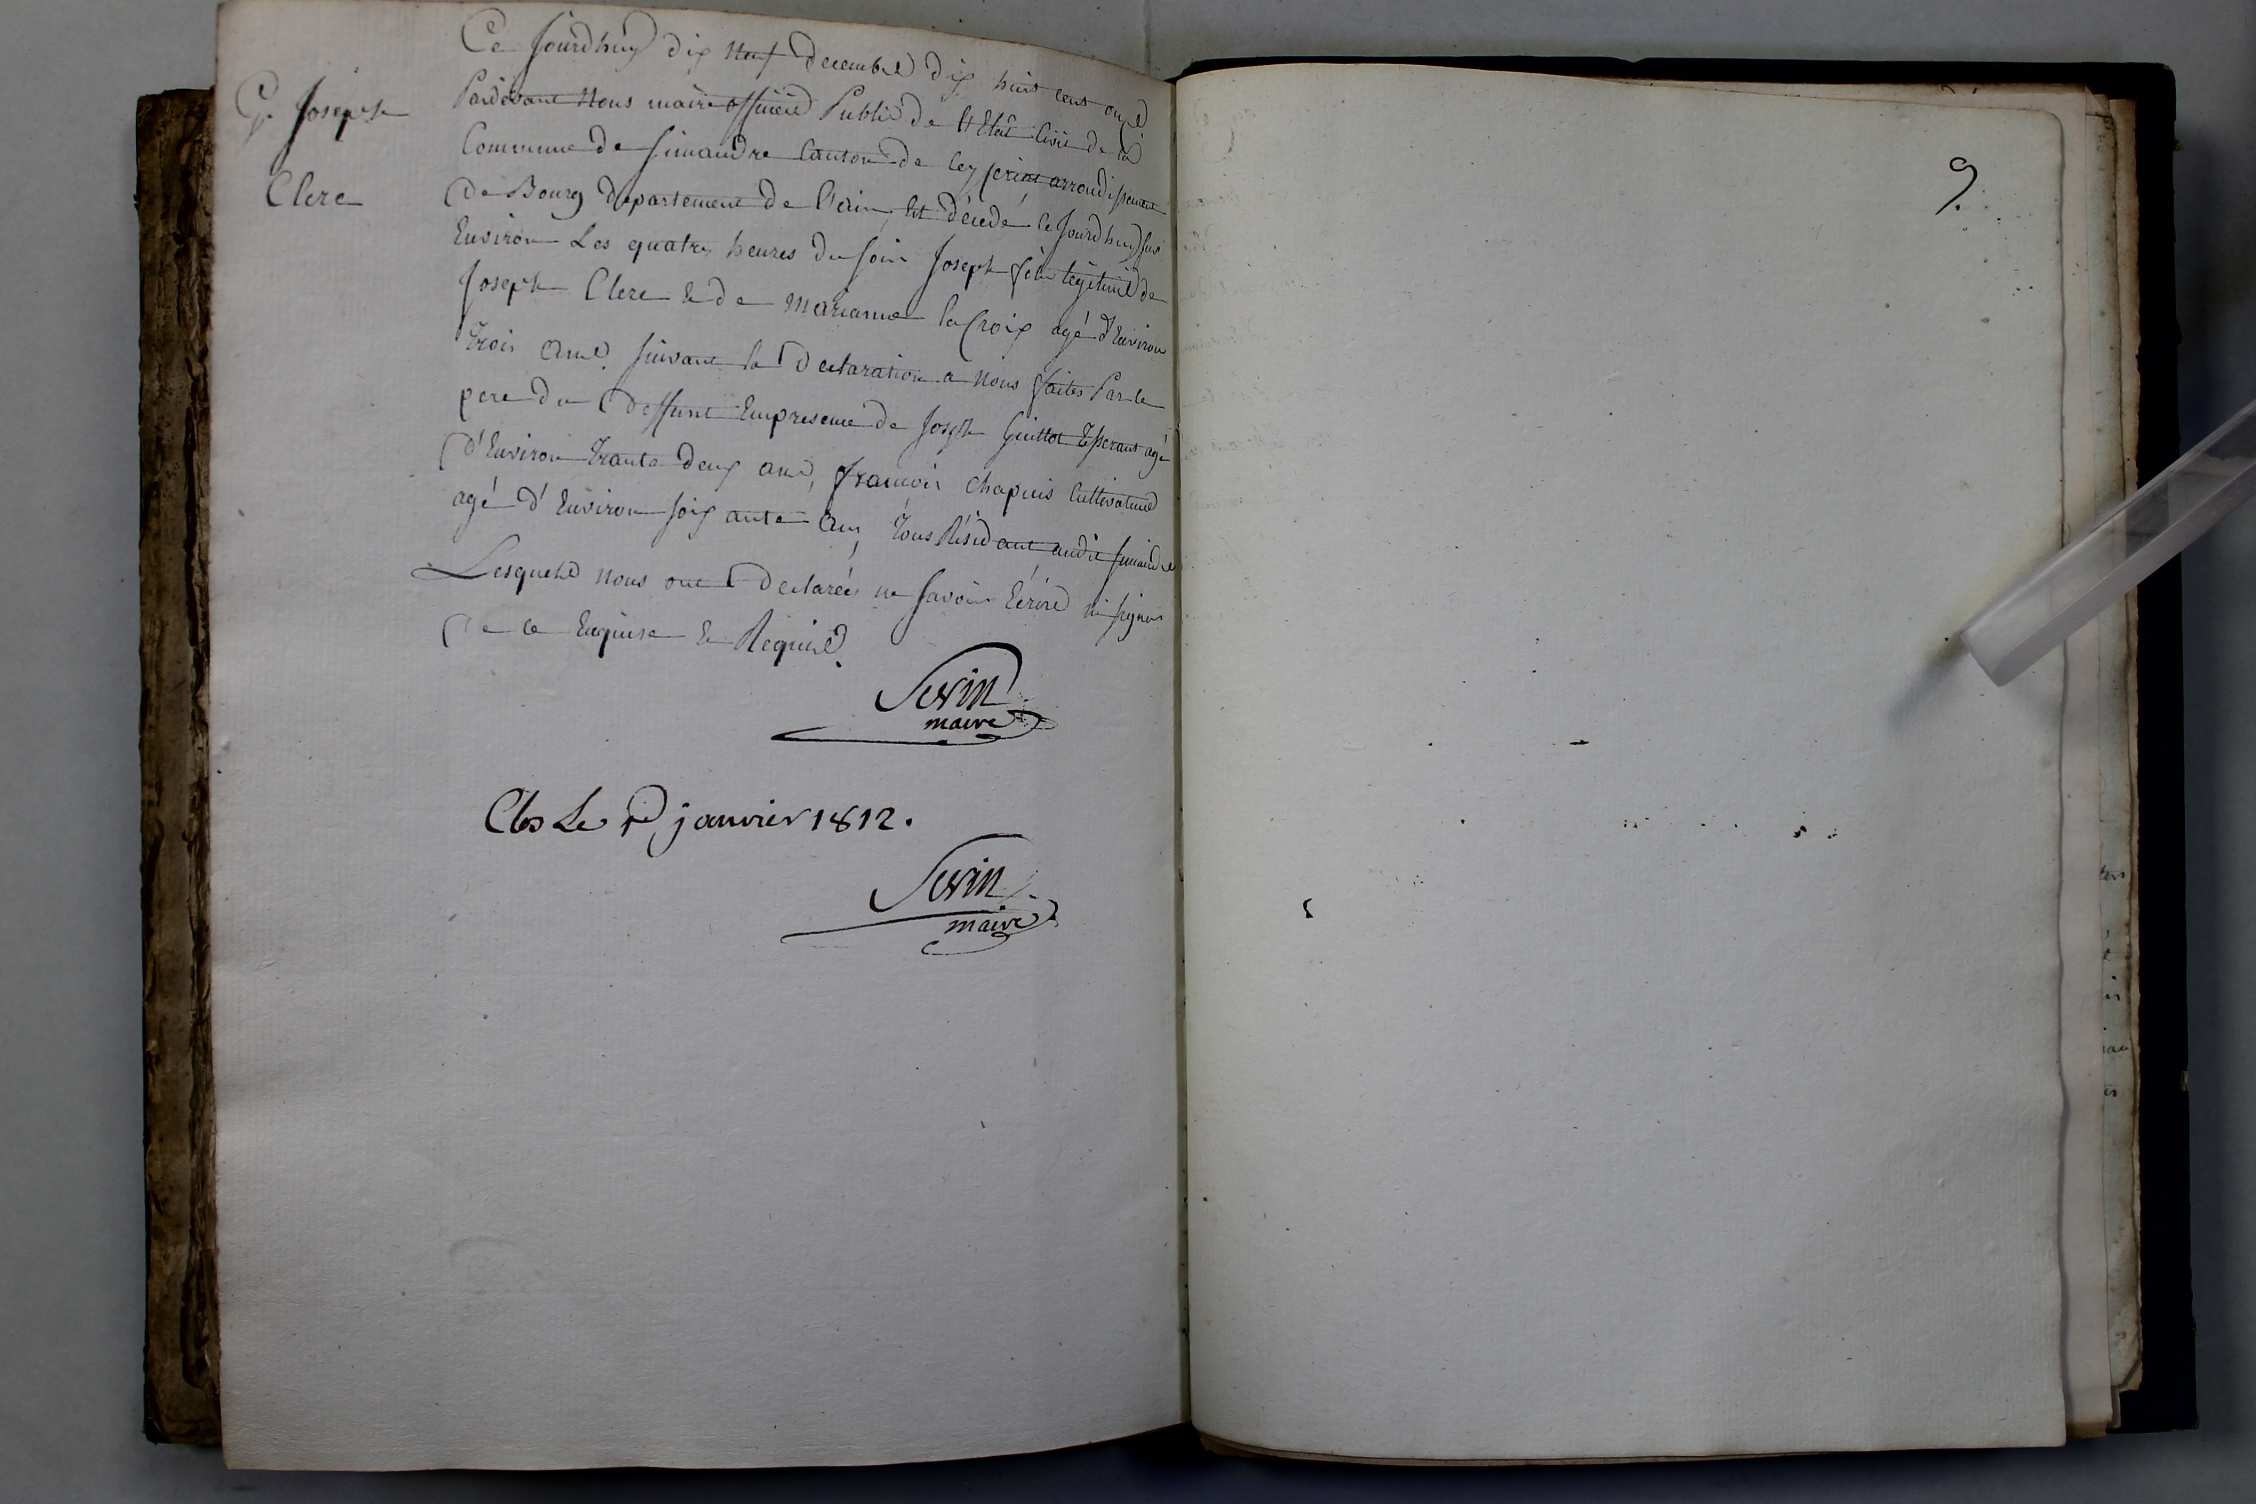 Joseph
Clerc
Ce Jourdhuy dix neuf decembre dix huit cent onze
Pardevant Nous maire officier Public de l'Etat Civil de la
Commune de Simandre Canton de Ceyseriat arrondissement
de Bourg departement de l'ain, Est décedé ce Jourdhuy sur
Environ Les quatre heures du soir Joseph fils legitime de
Joseph Clerc & de marianne la Croix agé d'Environ
trois ans. suivant la declaration a nous faites Par le
pere du deffunt Enpresence de Joseph Guillot agé
d'Environ trante deux ans, francois chapuis Cultivateur
agé d'Environ soixante ans, tous Résidant audit simandre
Lesquels nous ont declarées ne savoir Ecrire ni signer
de ce Enquise & Requise.
Servin
maire
Clos Le 1er janvier 1812.
Servin
maire
9.